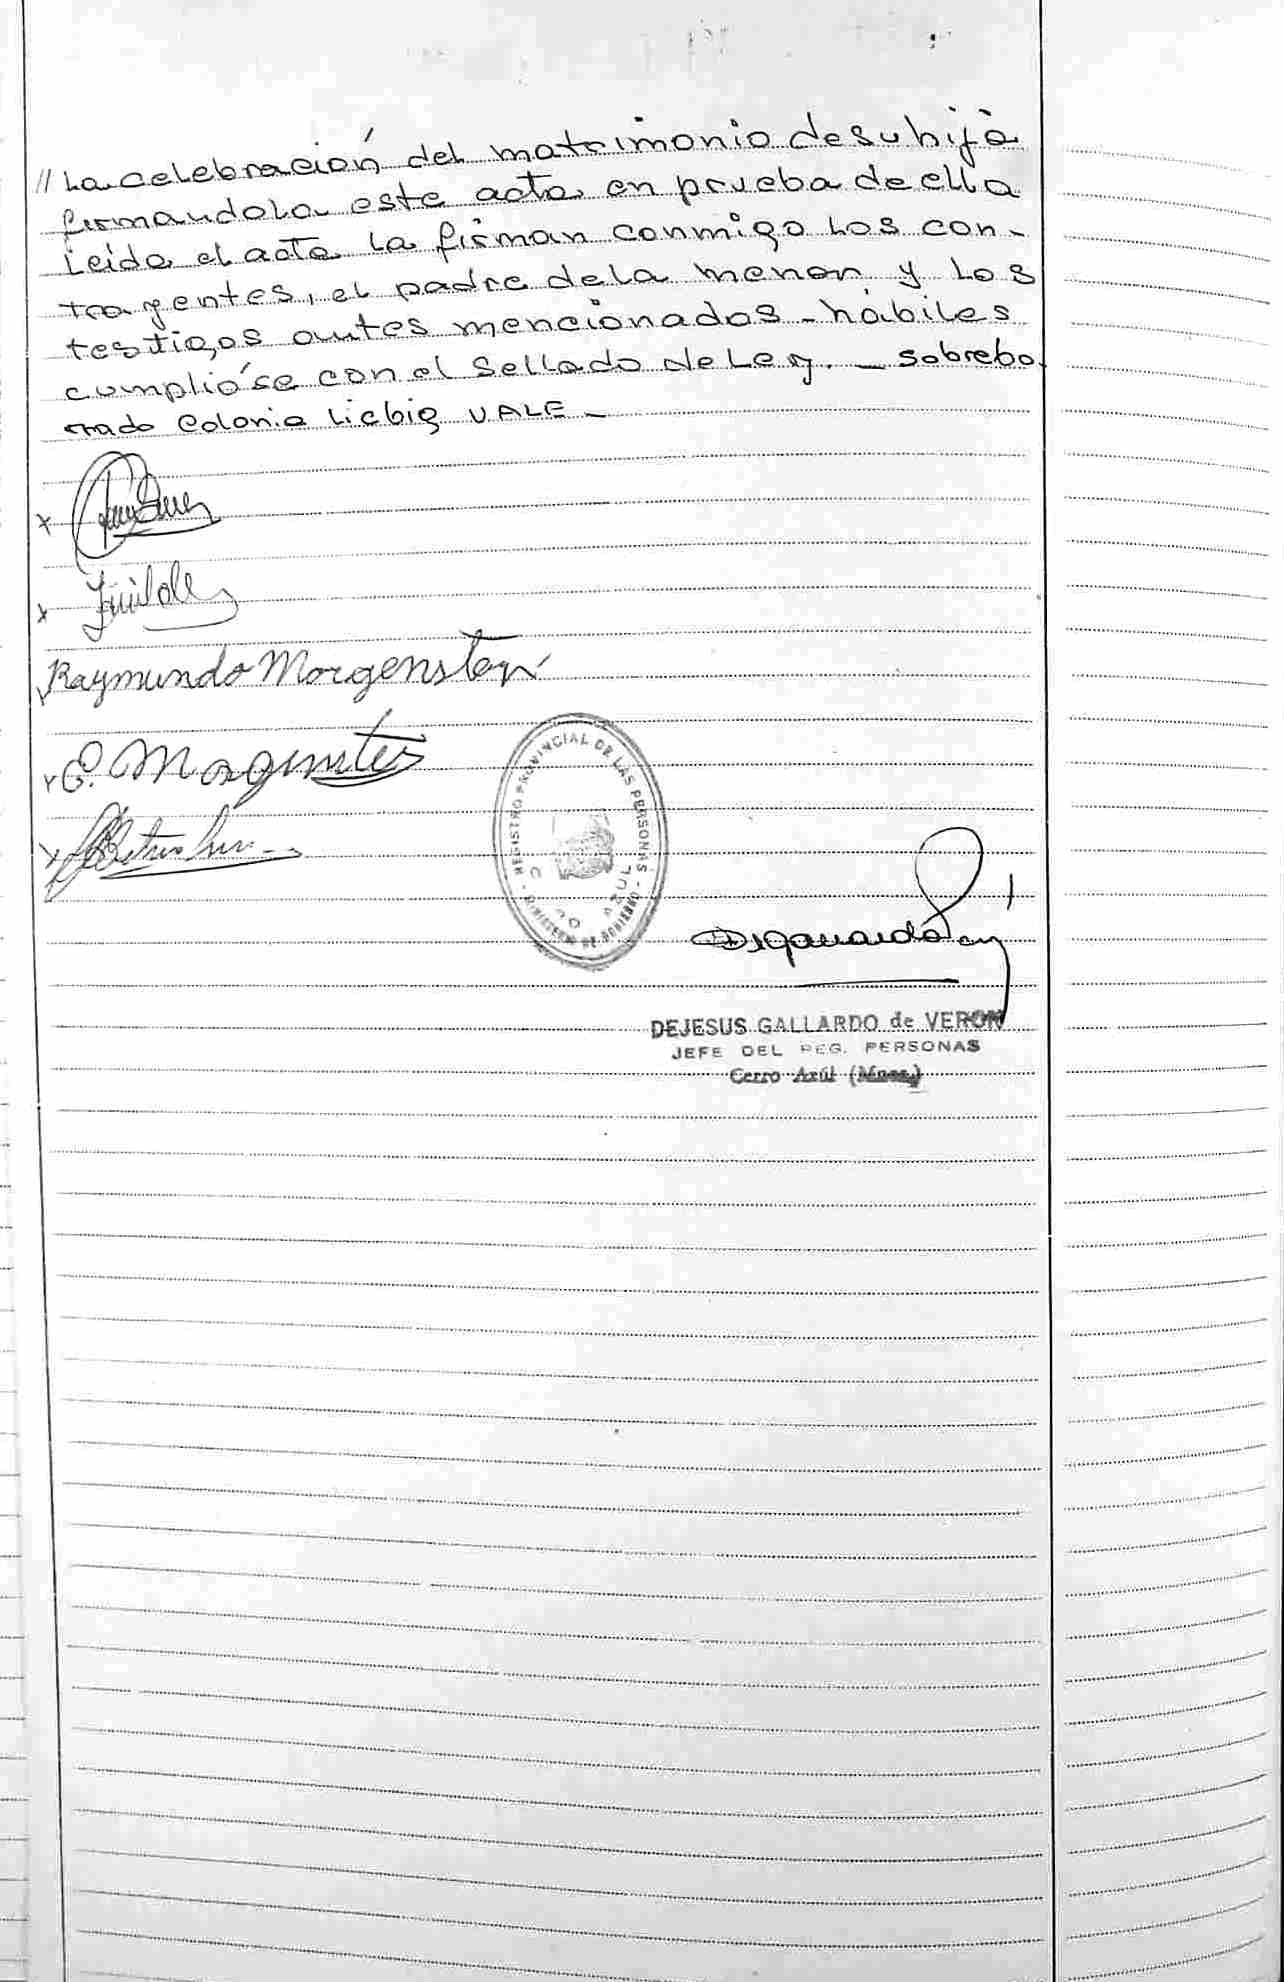 // La celebración del matrimonio de su hija
firmandola este acta en prueba de ella
Leida el acta La firman conmigo Los con-
trayentes, el padre de la menor y Los
testigos antes mencionados - hábiles
cumplióse con el Sellado de Ley. - sobrebo
rrado Colonia Liebig VALE -
x
x
Raymundo Morgenstern
x E. Morgenstern
x
REGISTRO PROVINCIAL DE LAS PERSONAS - MINISTERIO DE GOBIERNO -
AZUL
DEJESUS GALLARDO de VERON
JEFE DEL REG. PERSONAS
Cerro Azúl (Mnes.)